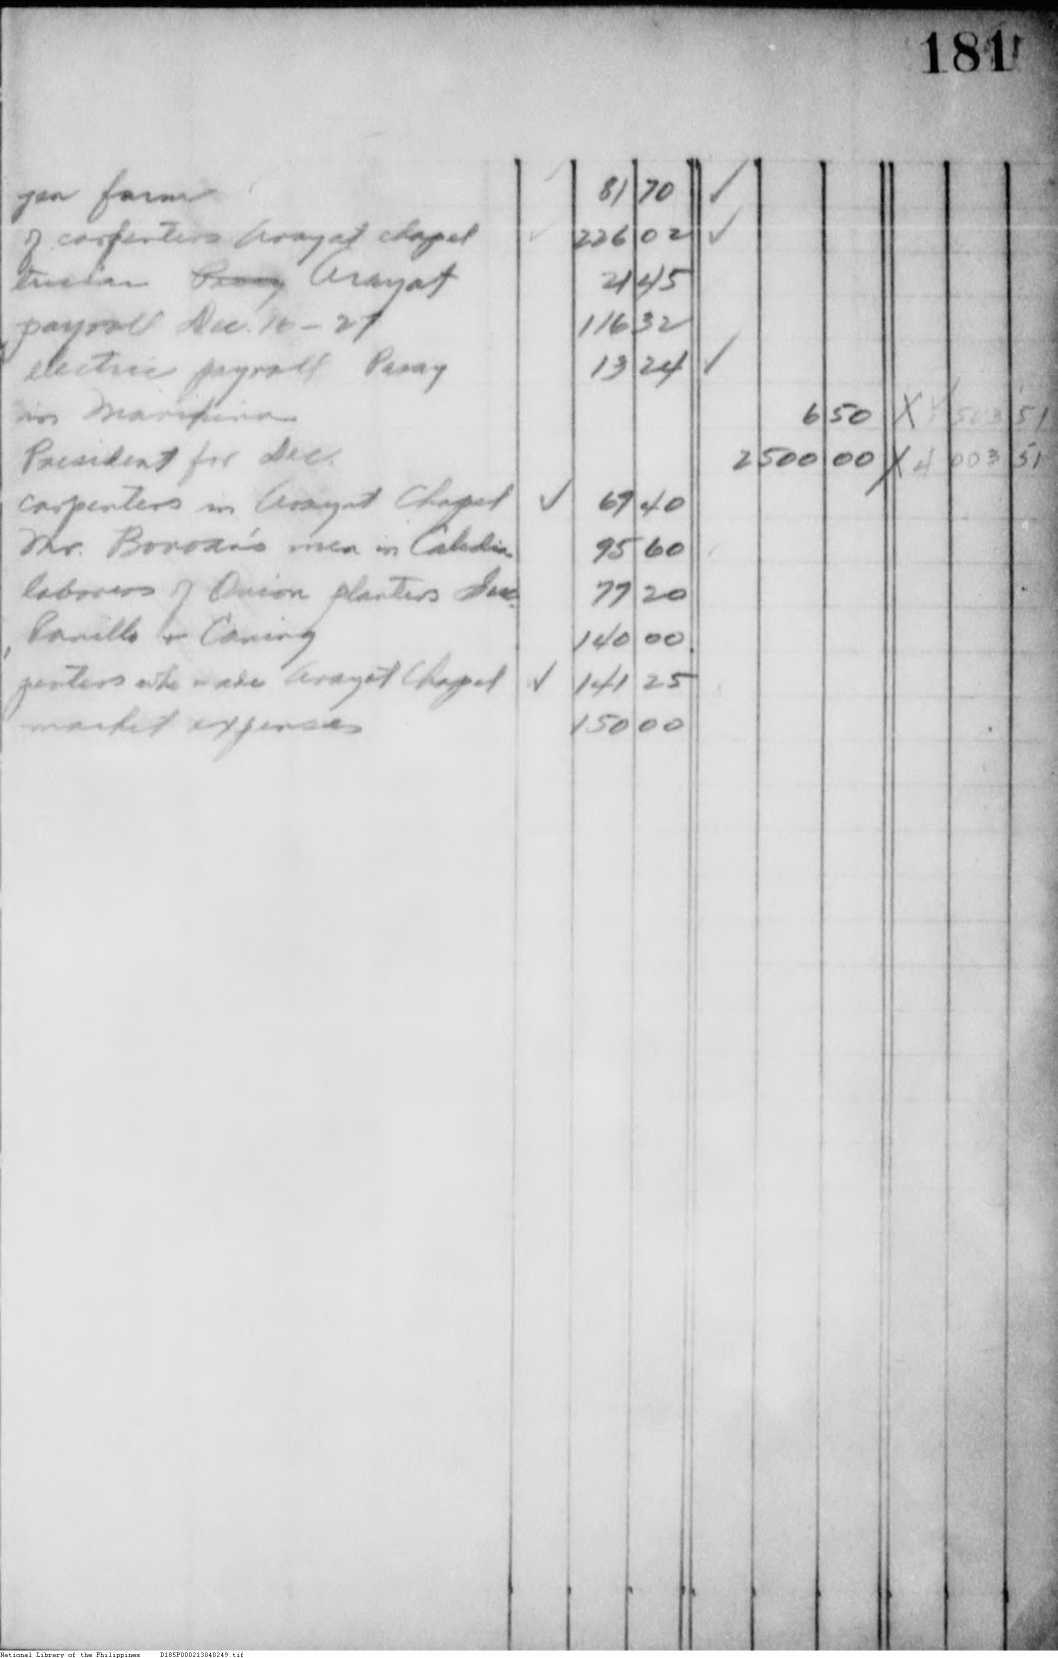 181
farm 81 70 ✓
of carpenters Arayat chapel 226 02 ✓
Arayat 21 45
payroll Dec. 16 - 27 116 32
electric payroll Pasay 13 24 ✓
in Marikina 6 50 X 503 51
President for Dec. 2500 00 X 4 003 51
carpenters in Arayat Chapel ✓ 69 40
Mr. men in 95 60
laborers of Onion planters 77 20
140 00
penters who made Arayat Chapel ✓ 141 25
market expenses 150 00
National Library of the Philippines D185P000213040249.tif